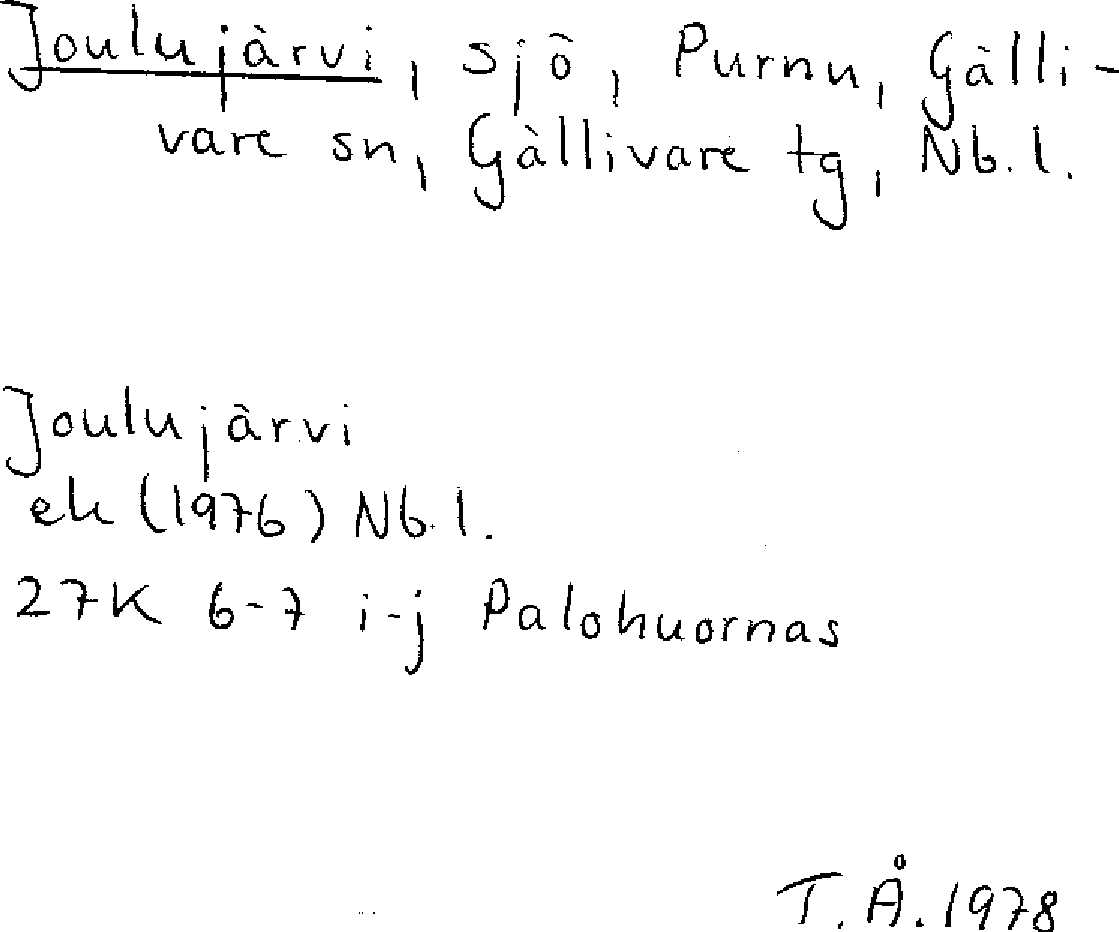 Joulujärvi, sjö, Purnu, Gälli-
vare sn, Gällivare tg, Nb.l.
Joulujärvi
ek (1976) Nb.l.
27K 6-7 i-j Palohuornas
T.Å.1978